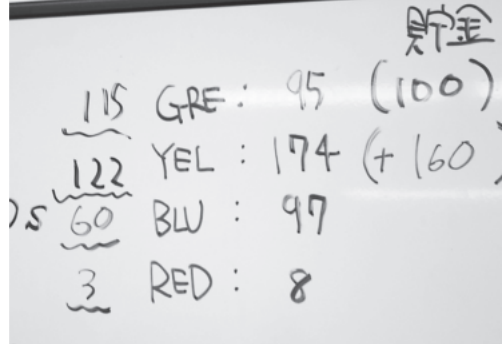 貯金
115 GRE: 95 (100)
122 YEL: 174 (+160)
60 BLU: 97
3 RED: 8